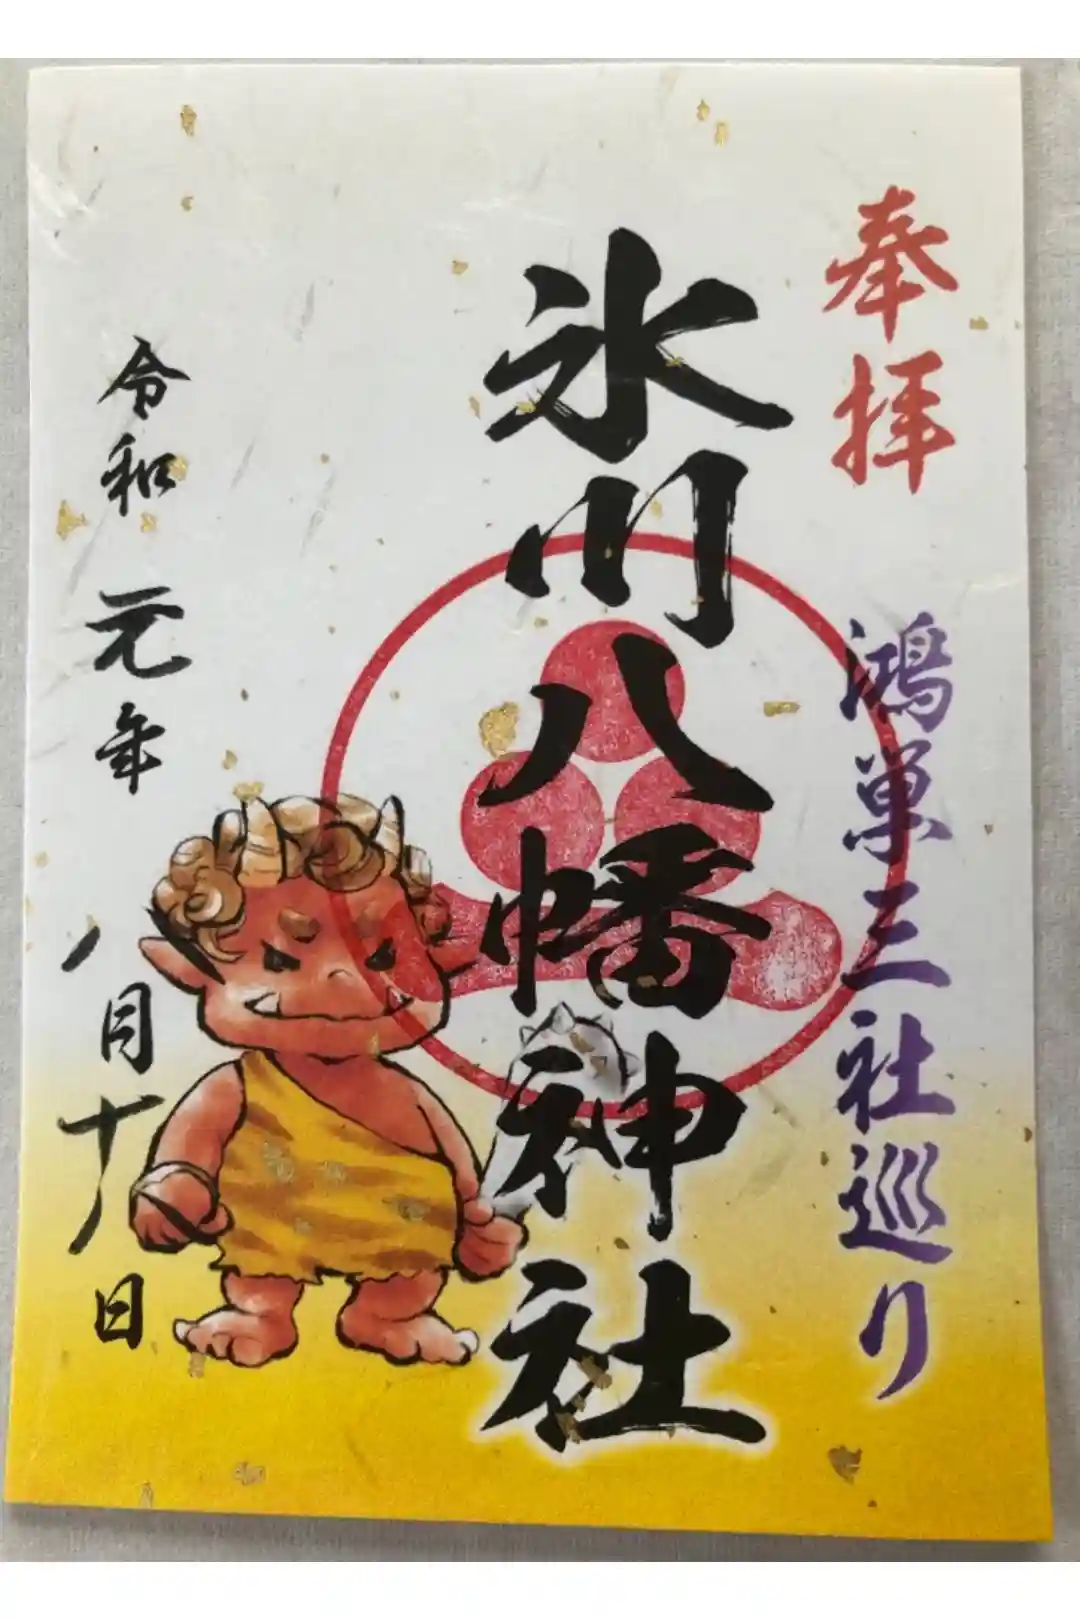 奉拝
鴻巣三社巡り
氷川八幡神社
令和元年八月十八日